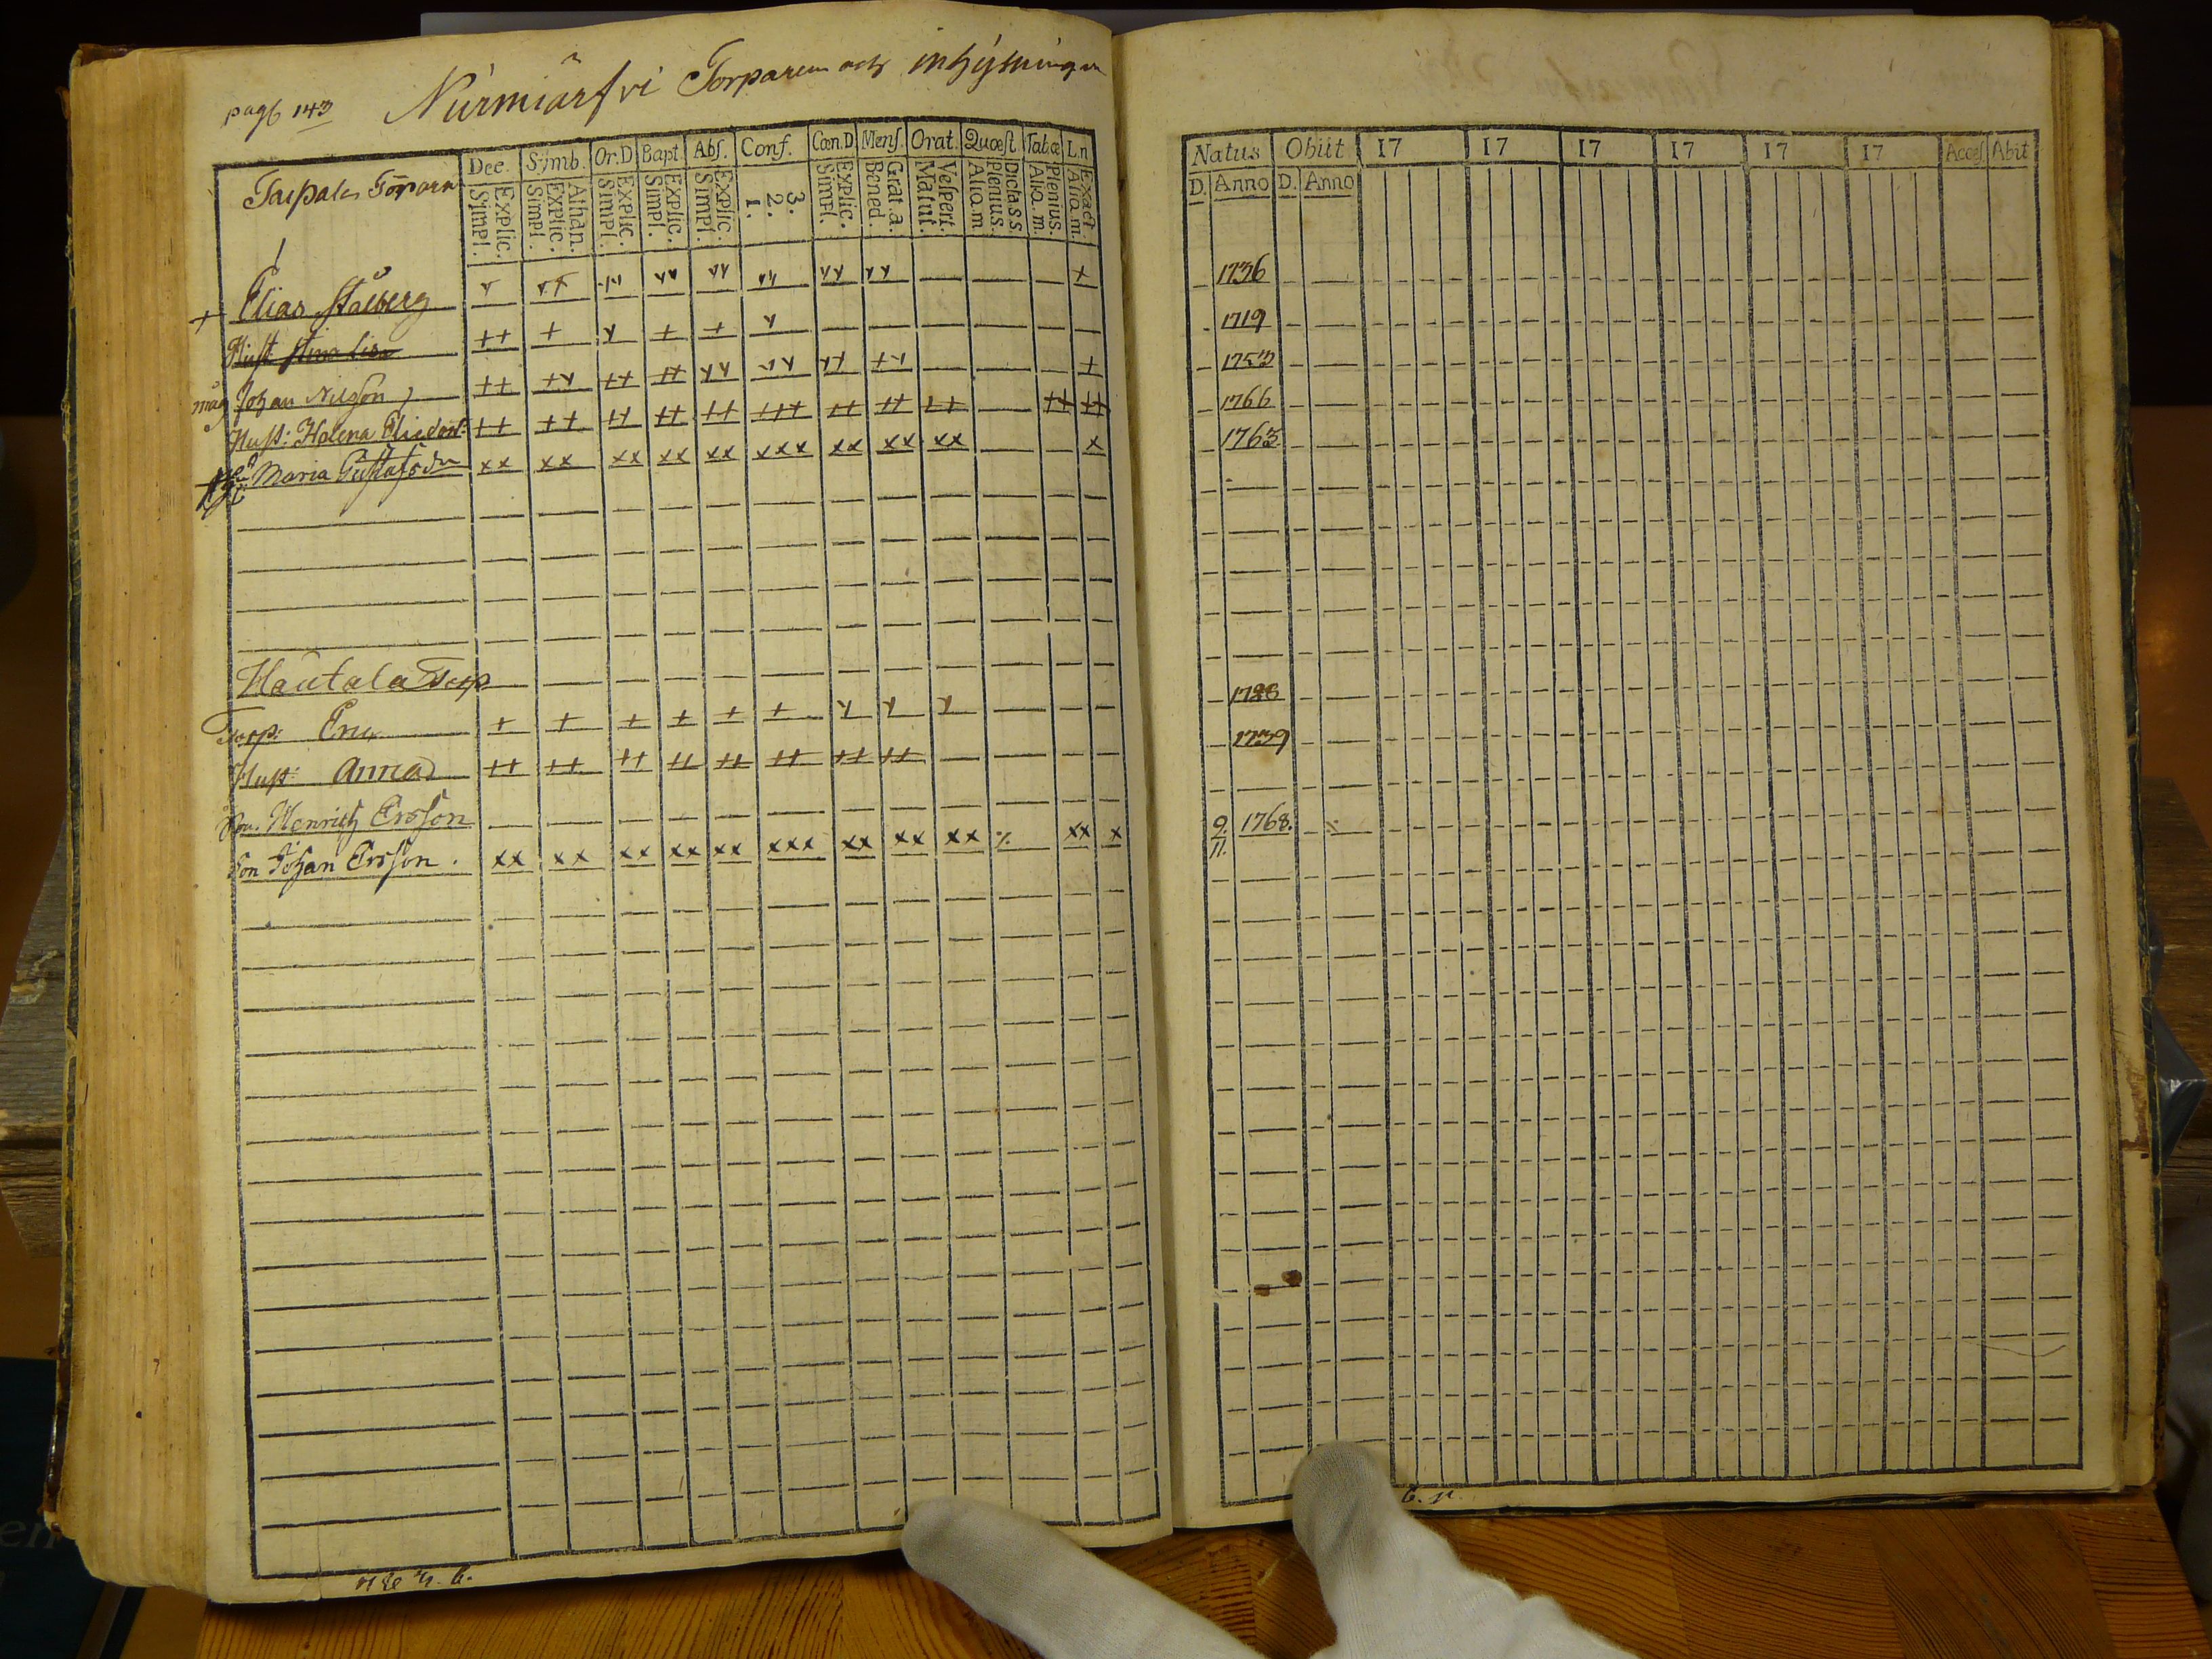 pag 143 Nurmiärfvi Torparen och inhysningen
Dec. Symb. Or.D Bapt. Abs. Conf. Cœn.D Mens. Orat. Quœst. Tab.œ L.n
Taipale Torpare Explic. Simpl. Athan. Explic. Simpl. Explic. Simpl. Explic. Simpl. Explic. Simpl. 3. 2. 1. Explic. Simpl. Grat.a. Bened. Vespert. Matut. Dicta.s.s. Plenius. Aliq.m Plenius. Aliq.m. Exact. Aliq.m.
+ Elias Stålberg
Hust: Stina Lisa
måg Johan Nilsson
Hust: Helena Eliedott:
Maria Gustafsdr
Hautala Torp
Torp: Eric
Hust: Anna
Son. Henrich Ersson
Son Johan Ersson.
Natus Obiit 17 17 17 17 17 17 Acces Abit
D. Anno D. Anno
1736
1719
1753
1766
1763
1728
1739
9. 11. 1768.